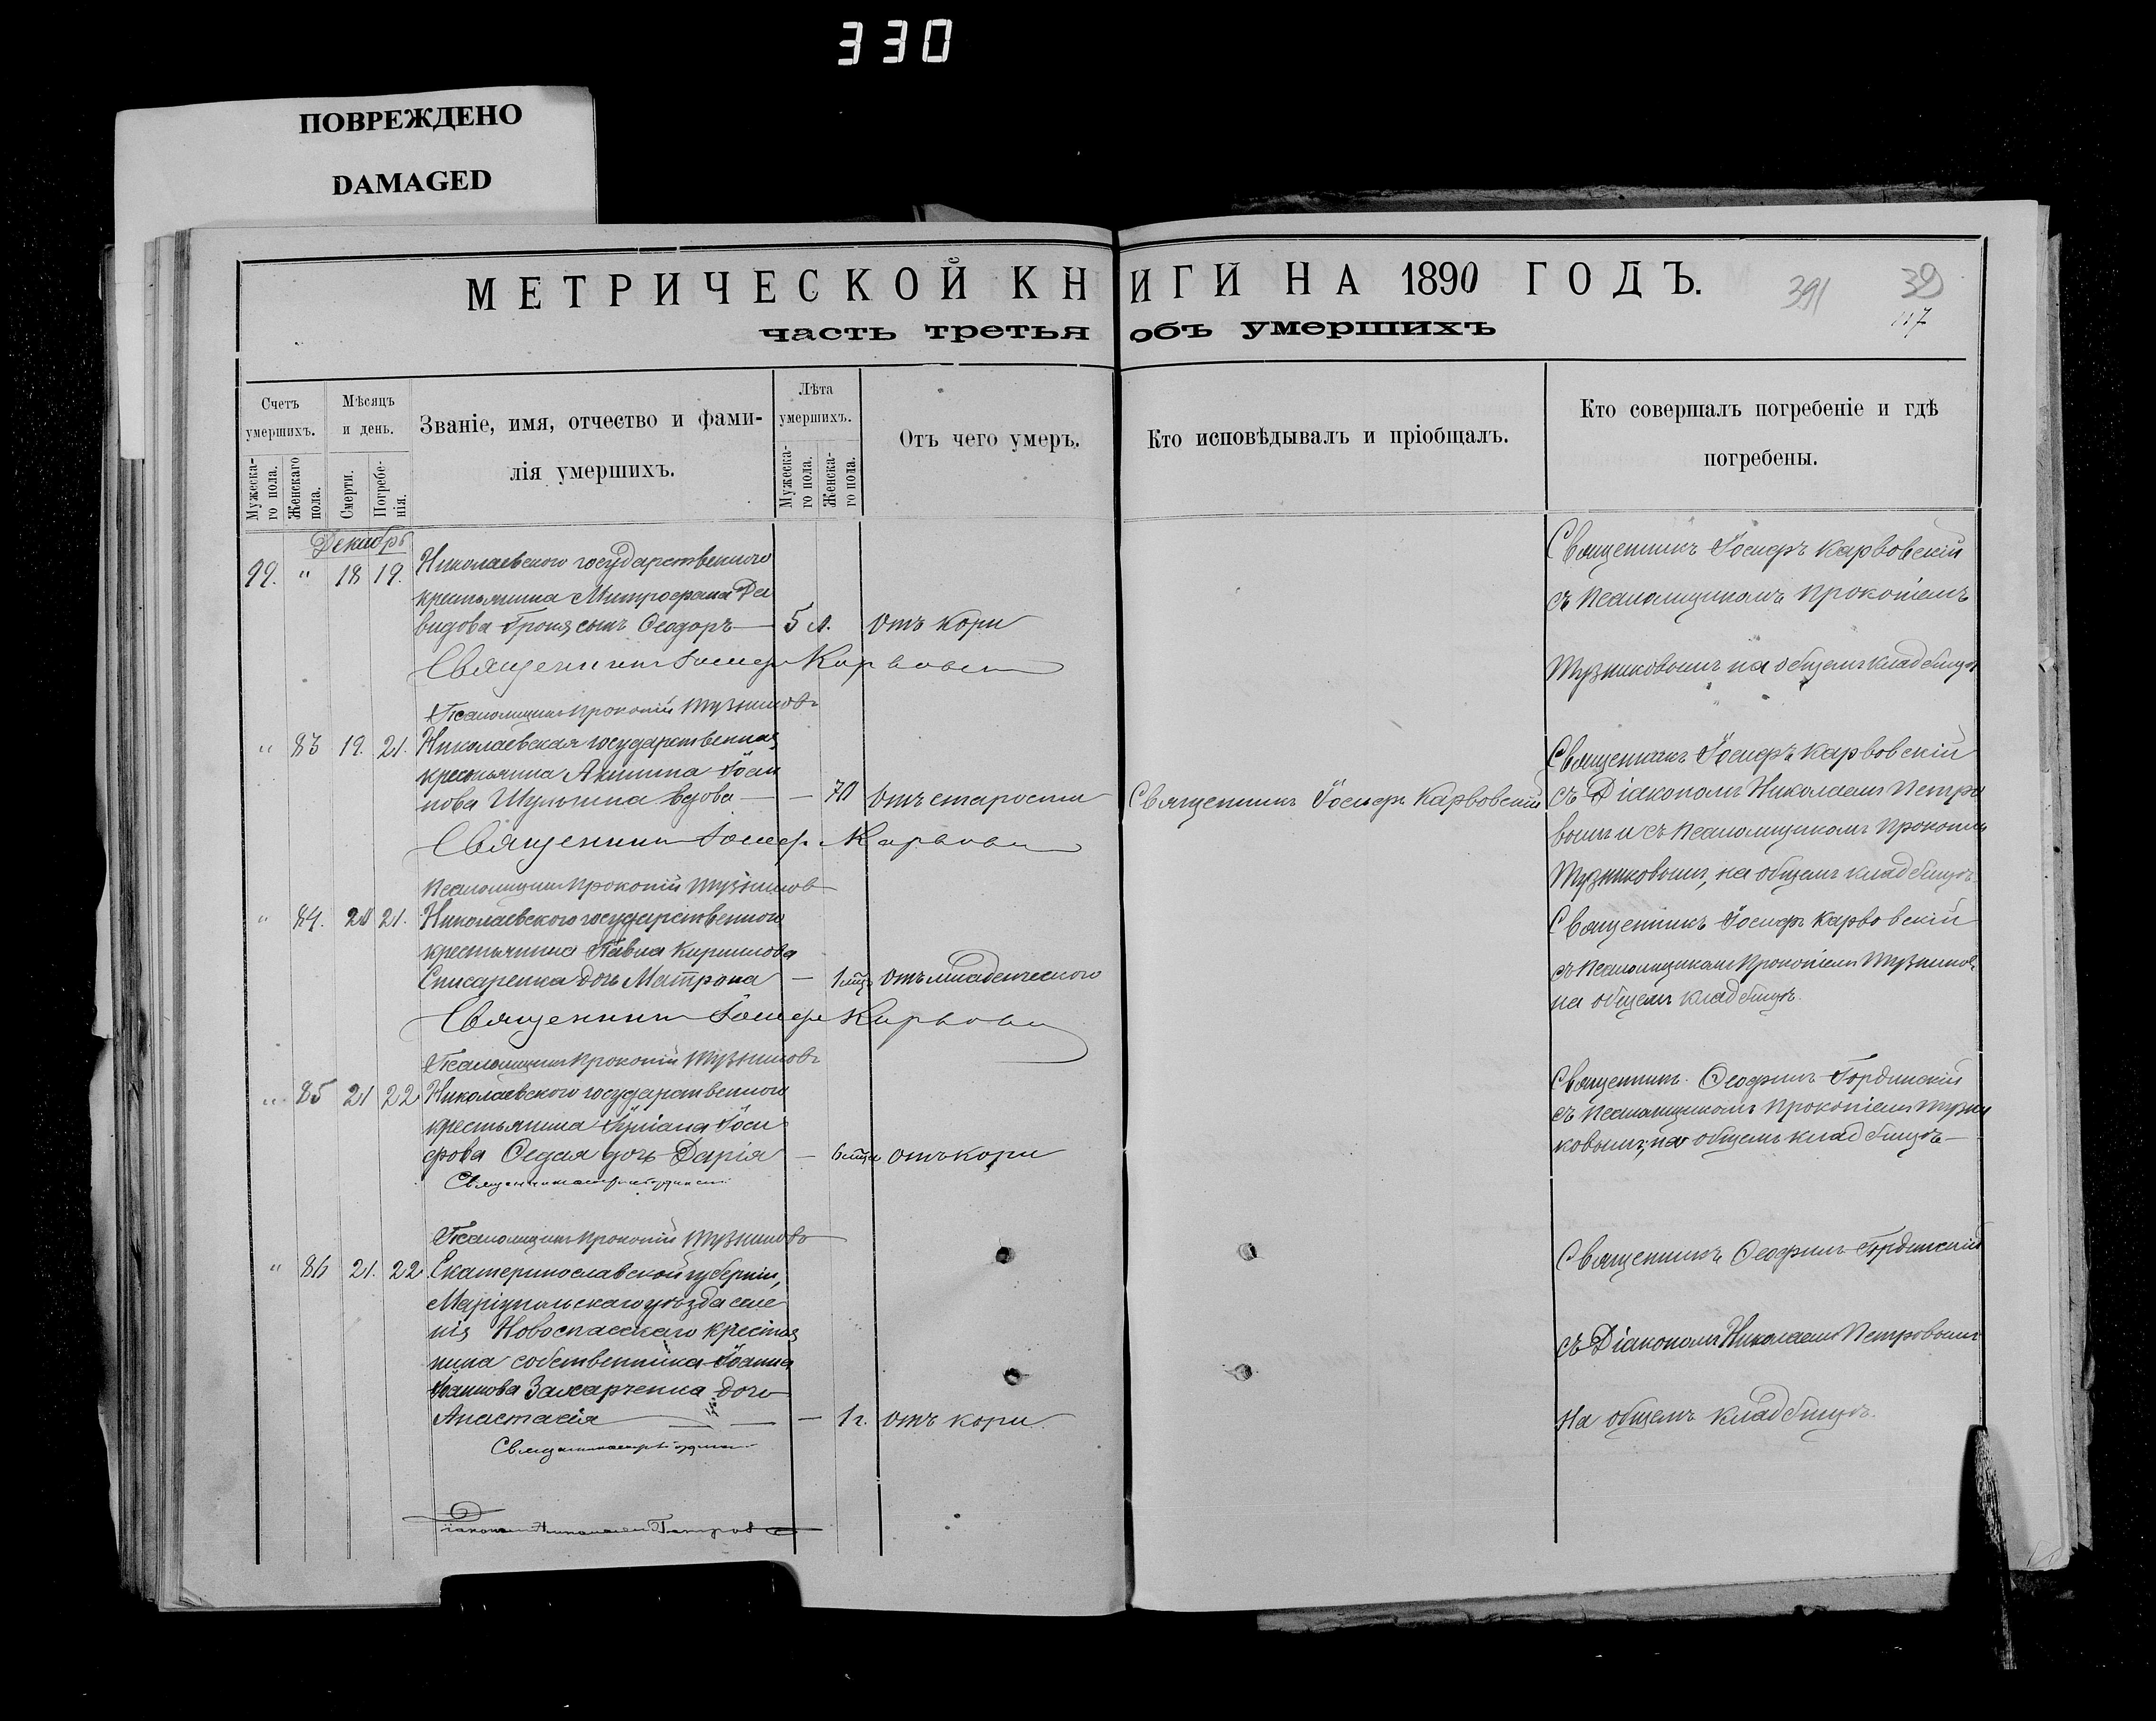 330
ПОВРЕЖДЕНО
DAMAGED
МЕТРИЧЕСКОЙ КНИГИ НА 1890 ГОДЪ.
391
39
117
часть третья объ умершихъ
Счетъ умершихъ.
Мужескаго пола.
Женскаго пола.
Мѣсяцъ и день.
Смерти.
Погребенія.
Званіе, имя, отчество и фамилія умершихъ.
Лѣта умершихъ.
Мужескаго пола.
Женскаго пола.
Отъ чего умеръ.
Кто исповѣдывалъ и пріобщалъ.
Кто совершалъ погребеніе и гдѣ погребены.
Декабрь
99. " 18 19. Николаевского государственного
крестьянина Митрофана Да
видова сынъ Ѳеодоръ — 5 л. отъ кори
Священникъ Іосифъ Карвовскій
съ псаломщикомъ Прокопіемъ
Тузниковымъ на общемъ кладбищѣ
Священникъ Іосифъ Карвовскій
Псаломщикъ Прокопій Тузниковъ
" 83 19. 21. Николаевская государственная
крестьянка Акилина Іоси
пова вдова — — 70 отъ старости
Священникъ Іосифъ Карвовскій
Священникъ Іосифъ Карвовскій
съ Діакономъ Николаемъ Петро
вымъ и съ псаломщикомъ Прокопіемъ
Тузниковымъ, на общемъ кладбищѣ
Священникъ Іосифъ Карвовскій
Псаломщикъ Прокопій Тузниковъ
" 84. 20 21. Николаевского государственного
крестьянина Павла Кириллова
Списаренка дочь Матрона — 1 мца отъ младенческого
Священникъ Іосифъ Карвовскій
съ псаломщикомъ Прокопіемъ Тузников
на общемъ кладбищѣ.
Священникъ Іосифъ Карвовскій
Псаломщикъ Прокопій Тузниковъ
" 85 21 22 Николаевского государственного
крестьянина Іуліана Іоси
фова Седая дочь Дарія — 6 мца отъ кори
Священникъ Ѳеофилъ Гординскій
съ псаломщикомъ Прокопіемъ Тузни
ковымъ, на общемъ кладбищѣ —
Псаломщикъ Прокопій Тузниковъ
" 86 21. 22 Екатеринославской губерніи,
Маріупольскаго уѣзда селе
нія Новоспасскаго крестья
нина собственника Іоанна
Іоаннова Захарченка дочь
Анастасія — — 1 г. отъ кори
Священникъ Ѳеофилъ Гординскій
съ Діакономъ Николаемъ Петровымъ
на общемъ кладбищѣ.
Діаконъ Николай Петровъ